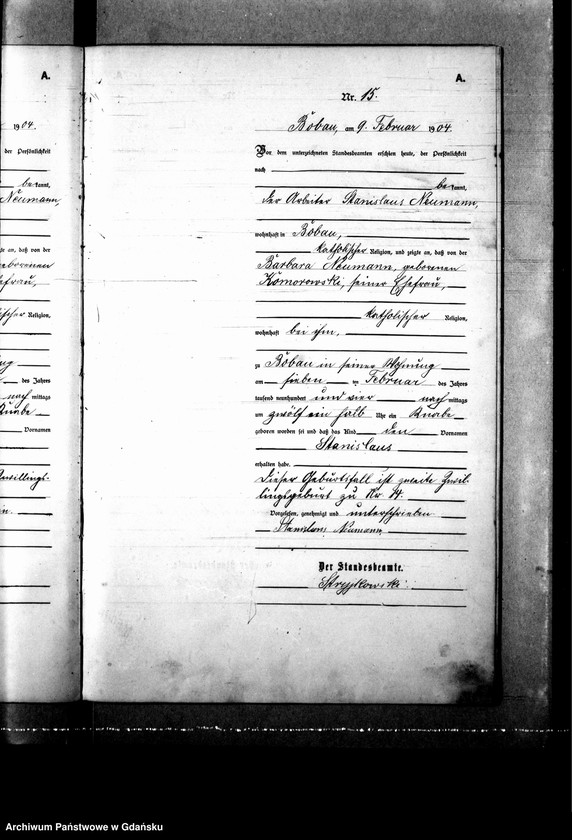 A.
1904.
der Persönlichkeit
bekannt,
Neumann,
zeigte an, daß von der
geborenen
Ehefrau,
Religion,
des Jahres
nach mittags
Knabe
Vornamen
Zwillings-
A.
Nr. 15.
Bobau, am 9. Februar 1904.
Vor dem unterzeichneten Standesbeamten erschien heute, der Persönlichkeit
nach
bekannt,
der Arbeiter Stanislaus Neumann,
wohnhaft in Bobau,
katholischer Religion, und zeigte an, daß von der
Barbara Neumann, geborenen
Komorowski, seiner Ehefrau,
katholischer Religion,
wohnhaft bei ihm,
zu Bobau in seiner Wohnung
am sieben ten Februar des Jahres
tausend neunhundert und vier nach mittags
um zwölf ein halb Uhr ein Knabe
geboren worden sei und daß das Kind den Vornamen
Stanislaus
erhalten habe.
Dieser Geburtsfall ist zweite Zwil-
lingsgeburt zu Nr 14.
Vorgelesen, genehmigt und unterschrieben
Stanislaus Neumann
Der Standesbeamte.
Archiwum Państwowe w Gdańsku